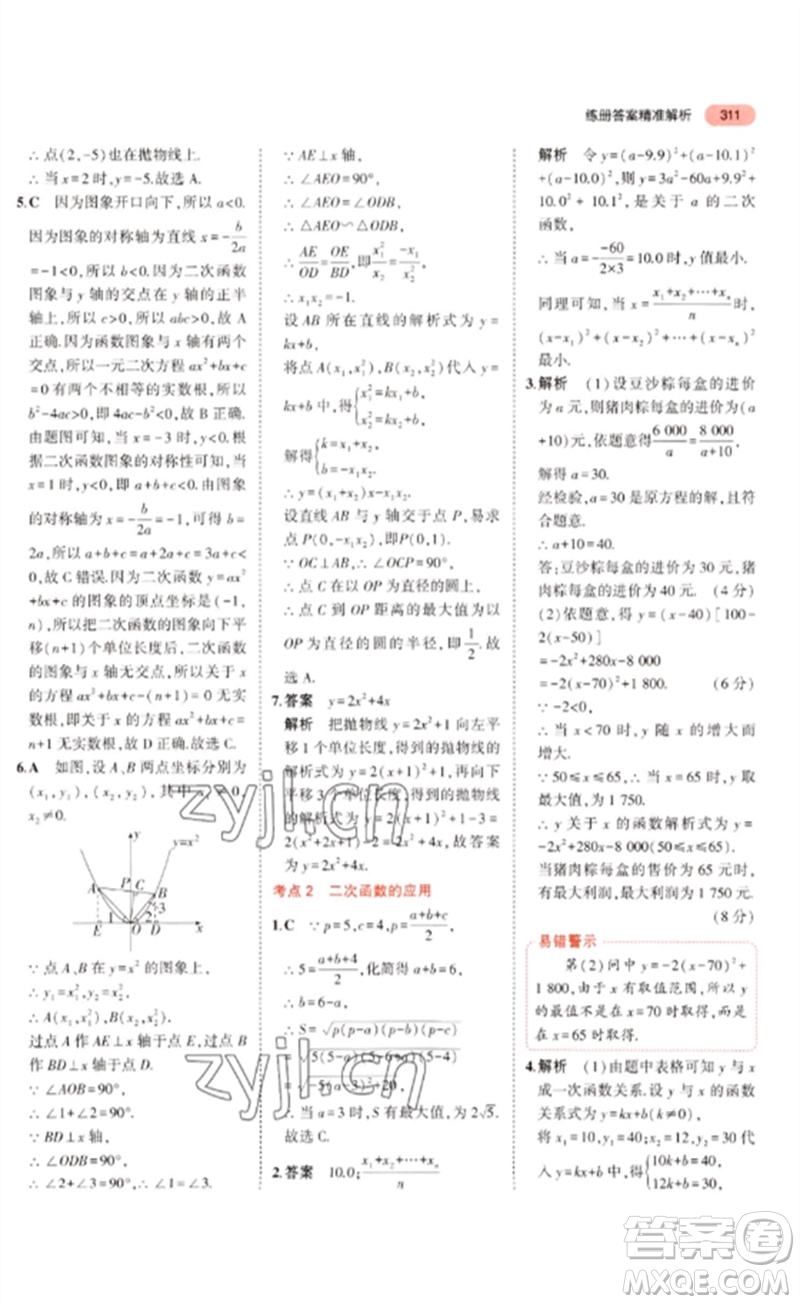 练册答案精准解析 311
∴ 点(2,-5)也在抛物线上.
∴ 当 x=2 时,y=-5.故选 A.
5.C 因为图象开口向下,所以 a<0.
因为图象的对称轴为直线 x=-b/2a
=-1<0,所以 b<0.因为二次函数
图象与 y 轴的交点在 y 轴的正半
轴上,所以 c>0,所以 abc>0,故 A
正确.因为函数图象与 x 轴有两个
交点,所以一元二次方程 ax²+bx+c
=0 有两个不相等的实数根,所以
b²-4ac>0,即 B 正确.
由题图可知,当 x=-3 时,y<0,根
据二次函数图象的对称性可知,当
x=1 时,y<0,即 a+b+c<0.由图象
的对称轴为 x=-b/2a=-1,可得 b=
2a,所以 a+b+c=a+2a+c=3a+c<
0,故 C 错误.因为二次函数 y=ax²
+bx+c 的图象的顶点坐标是(-1,
n),所以把二次函数的图象向下平
移(n+1)个单位长度后,二次函数
图象与 x 轴无交点,所以关于 x
的方程 ax²+bx+c=n+1 无实
数根,故 D 正确.故选 C.
6.A 如图,设 A、B 两点坐标分别为
(x₁,y₁),(x₂,y₂),其中 x₁≠0,
x₂≠0.
y y=x²
A P C B
1 2
E O D x
∵ 点 A、B 在 y=x² 的图象上,
∴ y₁=x₁²,y₂=x₂².
∴ A(x₁,x₁²),B(x₂,x₂²).
过点 A 作 AE⊥x 轴于点 E,过点 B
作 BD⊥x 轴于点 D,
∵ ∠AOB=90°,
∴ ∠1+∠2=90°.
∵ BD⊥x 轴,
∴ ∠ODB=90°,
∴ ∠2+∠3=90°,∴ ∠1=∠3.
∵ AE⊥x 轴,
∴ ∠AEO=90°,
∴ ∠AEO=∠ODB,
∴ △AEO∽△ODB,
∴ AE/OD=OE/BD,即x₁²/x₂=-x₁/x₂²,
∴ x₁x₂=-1.
设 AB 所在直线的解析式为 y=
kx+b,
将点 A(x₁,x₁²),B(x₂,x₂²)代入 y=
kx+b 中,得{x₁²=kx₁+b,
x₂²=kx₂+b,
解得{k=x₁+x₂,
b=-x₁x₂.
∴ y=(x₁+x₂)x-x₁x₂.
设直线 AB 与 y 轴交于点 P,易求
点 P(0,-x₁x₂),即 P(0,1).
∵ OC⊥AB,∴ ∠OCP=90°,
∴ 点 C 在以 OP 为直径的圆上,
∴ 点 C 到 OP 距离的最大值为以
OP 为直径的圆的半径,即1/2.故
选 A.
7.答案 y=2x²+4x
解析 把抛物线 y=2x²+1 向左平
移 1 个单位长度,得到的抛物线的
解析式为 y=2(x+1)²+1,再向下
平移 3 个单位长度,得到的抛物线
的解析式为 y=2(x+1)²+1-3=
2(x+1)²-2=2x²+4x,故答案
为 y=2x²+4x.
考点 2 二次函数的应用
1.C ∵ p=5,c=4,p=(a+b+c)/2,
∴ 5=(a+b+4)/2,化简得 a+b=6,
∴ b=6-a,
∴ S=√p(p-a)(p-b)(p-c)
=√5(5-a)(5-b)(5-4)
∴ 当 a=3 时,S 有最大值,为 2√5.
故选 C.
2.答案 10.0;(x₁+x₂+…+xₙ)/n
解析 令 y=(a-9.9)²+(a-10.1)²
+(a-10.0)²,则 y=3a²-60a+9.9²+
10.0²+10.1²,是关于 a 的二次
函数,
∴ 当 a=-(-60)/(2×3)=10.0 时,y 值最小.
同理可知,当 x=(x₁+x₂+…+xₙ)/n时,
(x-x₁)²+(x-x₂)²+…+(x-xₙ)²
最小.
3.解析 (1)设豆沙粽每盒的进价
为 a 元,则猪肉粽每盒的进价为(a
+10)元,依题意得6 000/a=8 000/(a+10),
解得 a=30.
经检验,a=30 是原方程的解,且符
合题意.
∴ a+10=40.
答:豆沙粽每盒的进价为 30 元,猪
肉粽每盒的进价为 40 元. (4 分)
(2)依题意得,y=(x-40)[100-
2(x-50)]
=-2x²+280x-8 000
=-2(x-70)²+1 800. (6 分)
∵ -2<0,
∴ 当 x<70 时,y 随 x 的增大而
增大.
∵ 50≤x≤65,∴ 当 x=65 时,y 取
最大值,最大值为 1 750.
∴ y 关于 x 的函数解析式为 y=
-2x²+280x-8 000(50≤x≤65),
当猪肉粽每盒的售价为 65 元时,
有最大利润,最大利润为 1 750 元.
(8 分)
易错警示
第(2)问中 y=-2(x-70)²+
1 800,由于 x 有取值范围,所以 y
的最值不是在 x=70 时取得,而是
在 x=65 时取得.
4.解析 (1)由题中表格可知 y 与 x
成一次函数关系.设一次函数关系
式为 y=kx+b(k≠0),
将 x₁=10,y₁=40;x₂=12,y₂=36 代
入 y=kx+b,得{10k+b=40,
12k+b=36,
zyjl.cn
zyjl.cn
答案圈
MXQE.COM